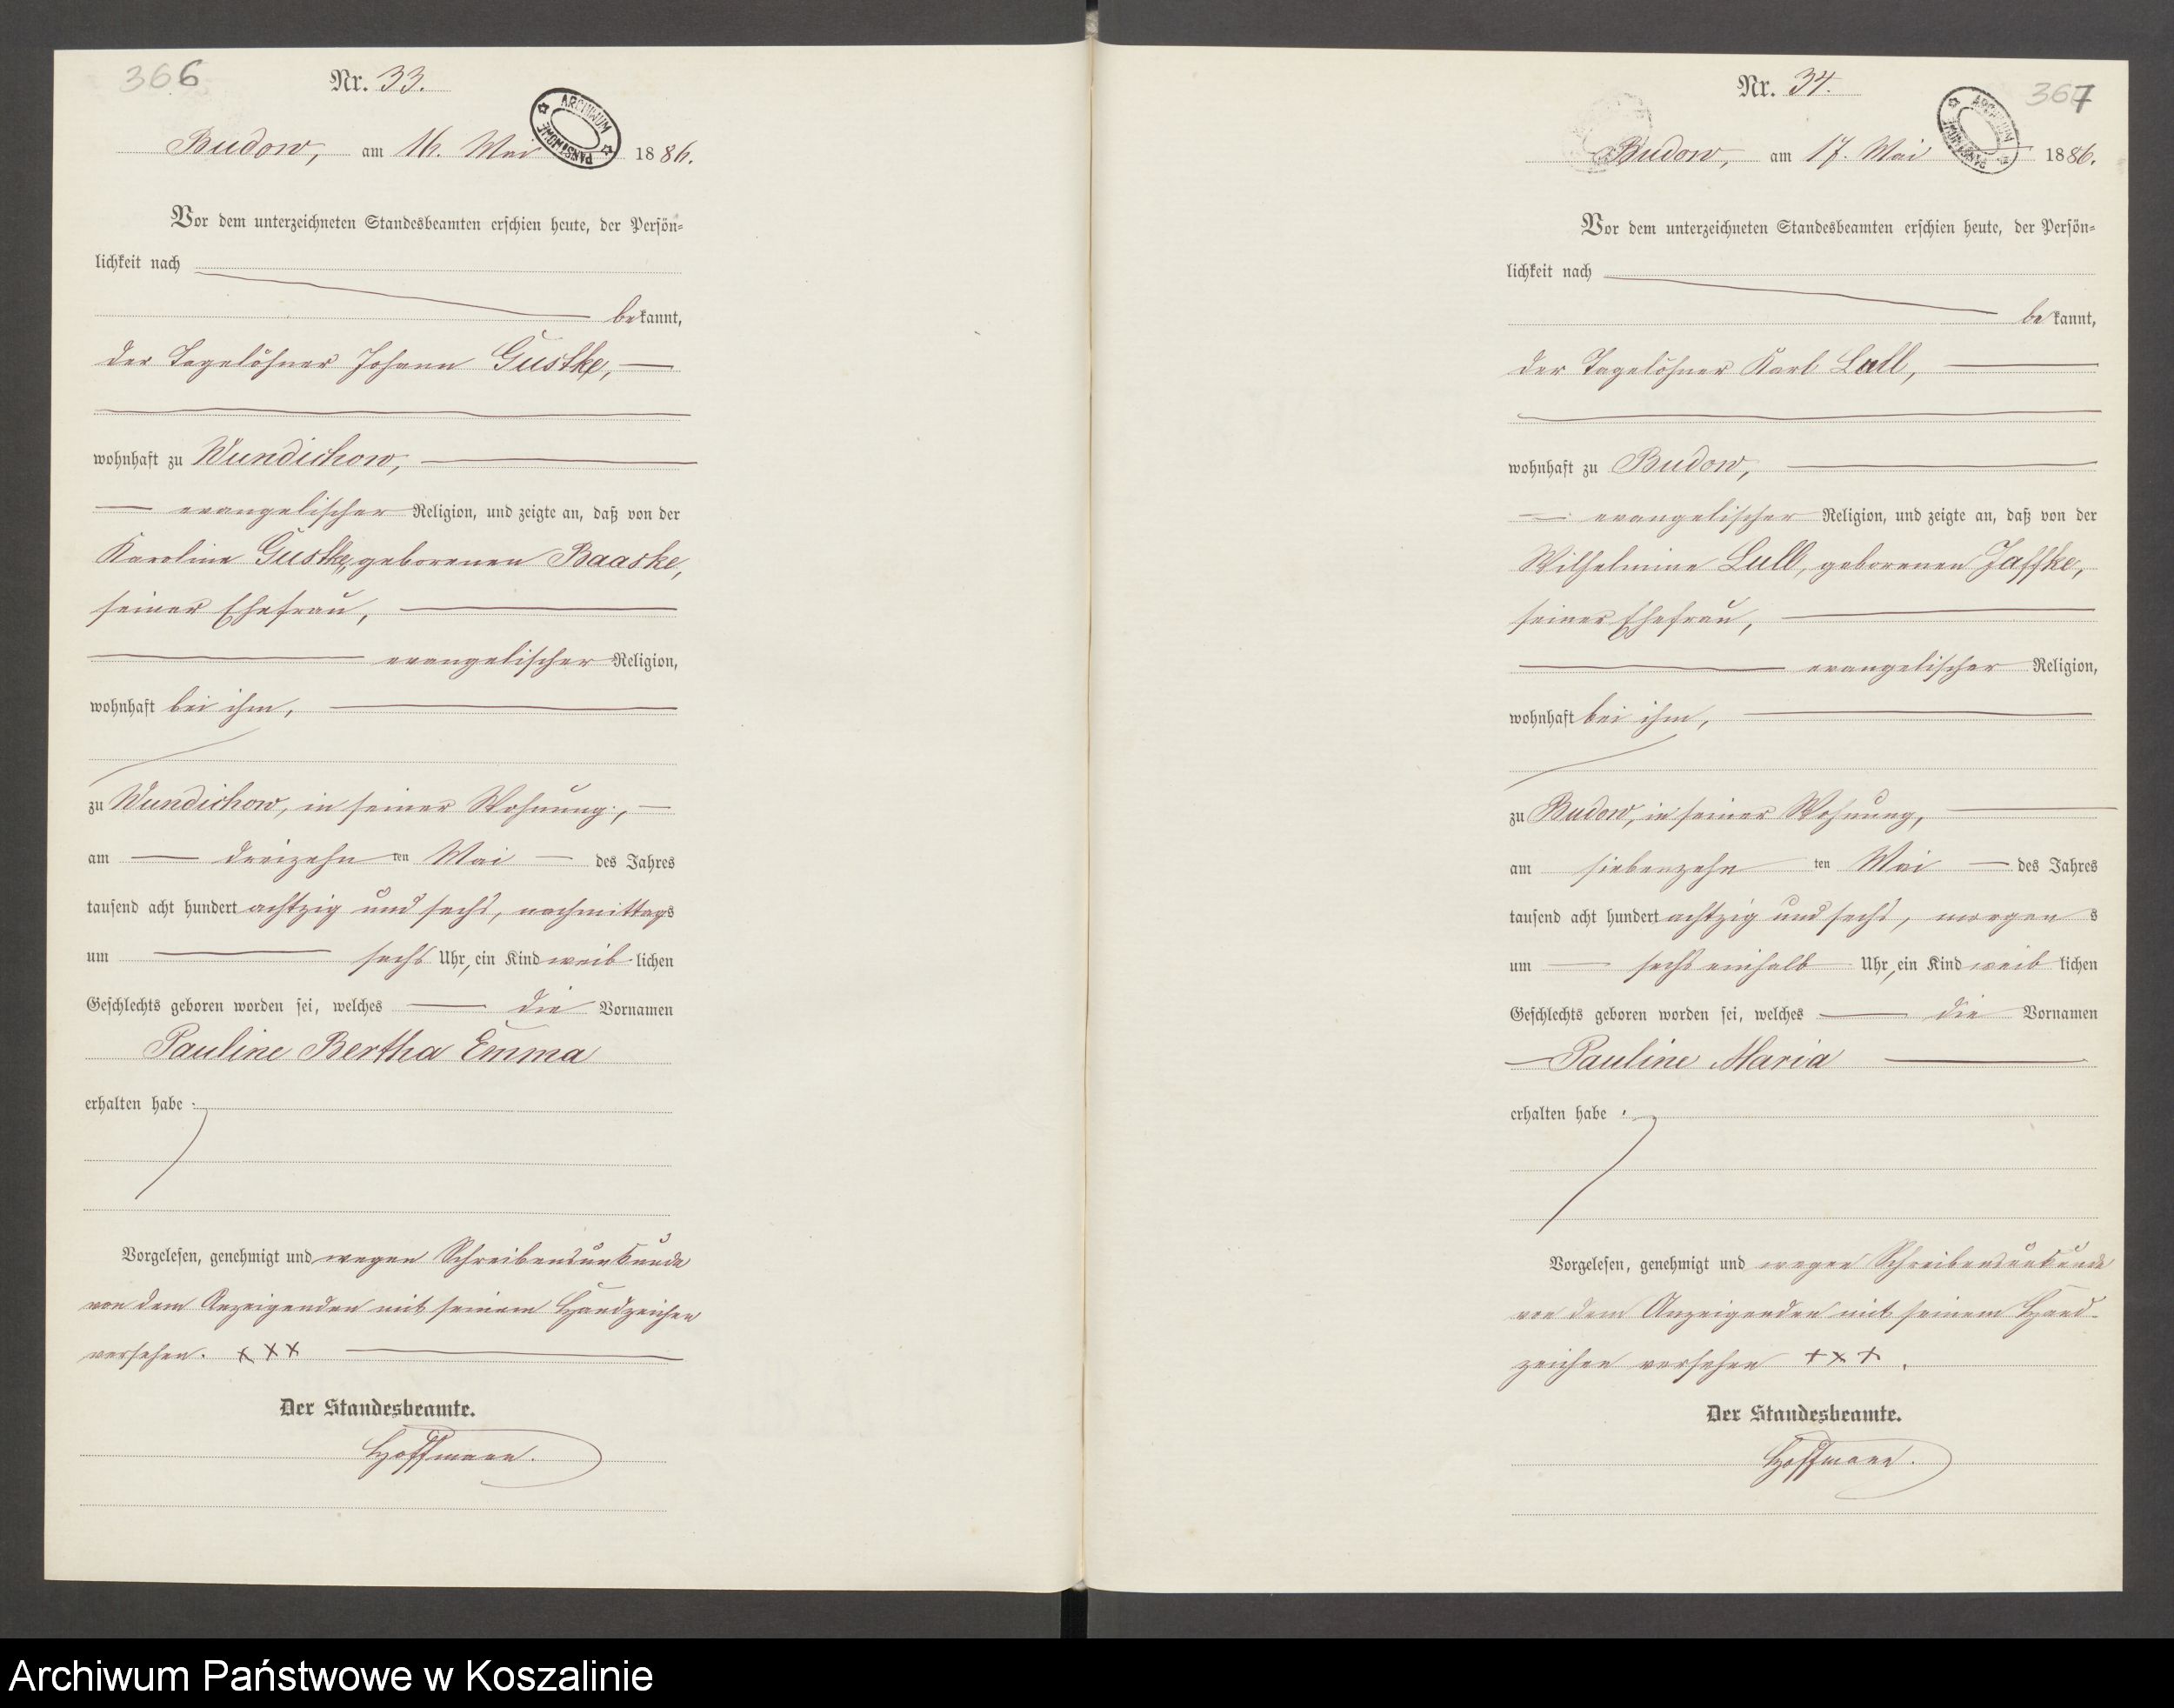 366
Nr. 33.
ARCHIWUM PAŃSTWOWE
Budow, am 16. Mai 1886.
Vor dem unterzeichneten Standesbeamten erschien heute, der Persön-
lichkeit nach
bekannt,
der Tagelöhner Johann Gustke,
wohnhaft zu Wundichow,
evangelischer Religion, und zeigte an, daß von der
Karoline Gustke, geborenen Baaske,
seiner Ehefrau,
evangelischer Religion,
wohnhaft bei ihm,
zu Wundichow, in seiner Wohnung,
am dreizehn ten Mai des Jahres
tausend acht hundert achtzig und sechs, nachmittags
um sechs Uhr, ein Kind weiblichen
Geschlechts geboren worden sei, welches die Vornamen
Pauline Bertha Emma
erhalten habe.
Vorgelesen, genehmigt und wegen Schreibensunkunde
von dem Anzeigenden mit seinem Handzeichen
versehen. XXX
Der Standesbeamte.
Hoffmann.
367
Nr. 34.
ARCHIWUM PAŃSTWOWE
Budow, am 17. Mai 1886.
Vor dem unterzeichneten Standesbeamten erschien heute, der Persön-
lichkeit nach
bekannt,
der Tagelöhner Karl Lull,
wohnhaft zu Budow,
evangelischer Religion, und zeigte an, daß von der
Wilhelmine Lull, geborenen Jaffke,
seiner Ehefrau,
evangelischer Religion,
wohnhaft bei ihm,
zu Budow, in seiner Wohnung,
am siebenzehn ten Mai des Jahres
tausend acht hundert achtzig und sechs, morgens
um sechs einhalb Uhr, ein Kind weiblichen
Geschlechts geboren worden sei, welches die Vornamen
Pauline Maria
erhalten habe.
Vorgelesen, genehmigt und wegen Schreibensunkunde
von dem Anzeigenden mit seinem Hand-
zeichen versehen XXX.
Der Standesbeamte.
Hoffmann.
Archiwum Państwowe w Koszalinie